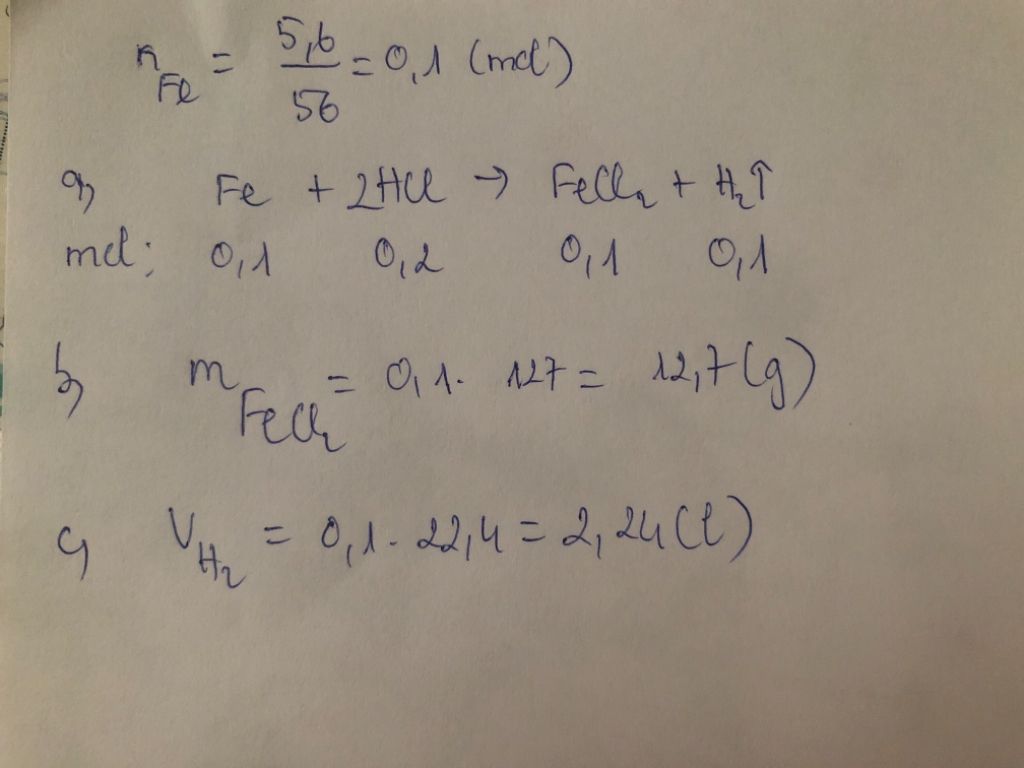 n_Fe = 5,6/56 = 0,1 (mol)
a, Fe + 2HCl → FeCl₂ + H₂↑
mol: 0,1 0,2 0,1 0,1
b, m_FeCl₂ = 0,1 . 127 = 12,7 (g)
c, V_H₂ = 0,1 . 22,4 = 2,24 (l)